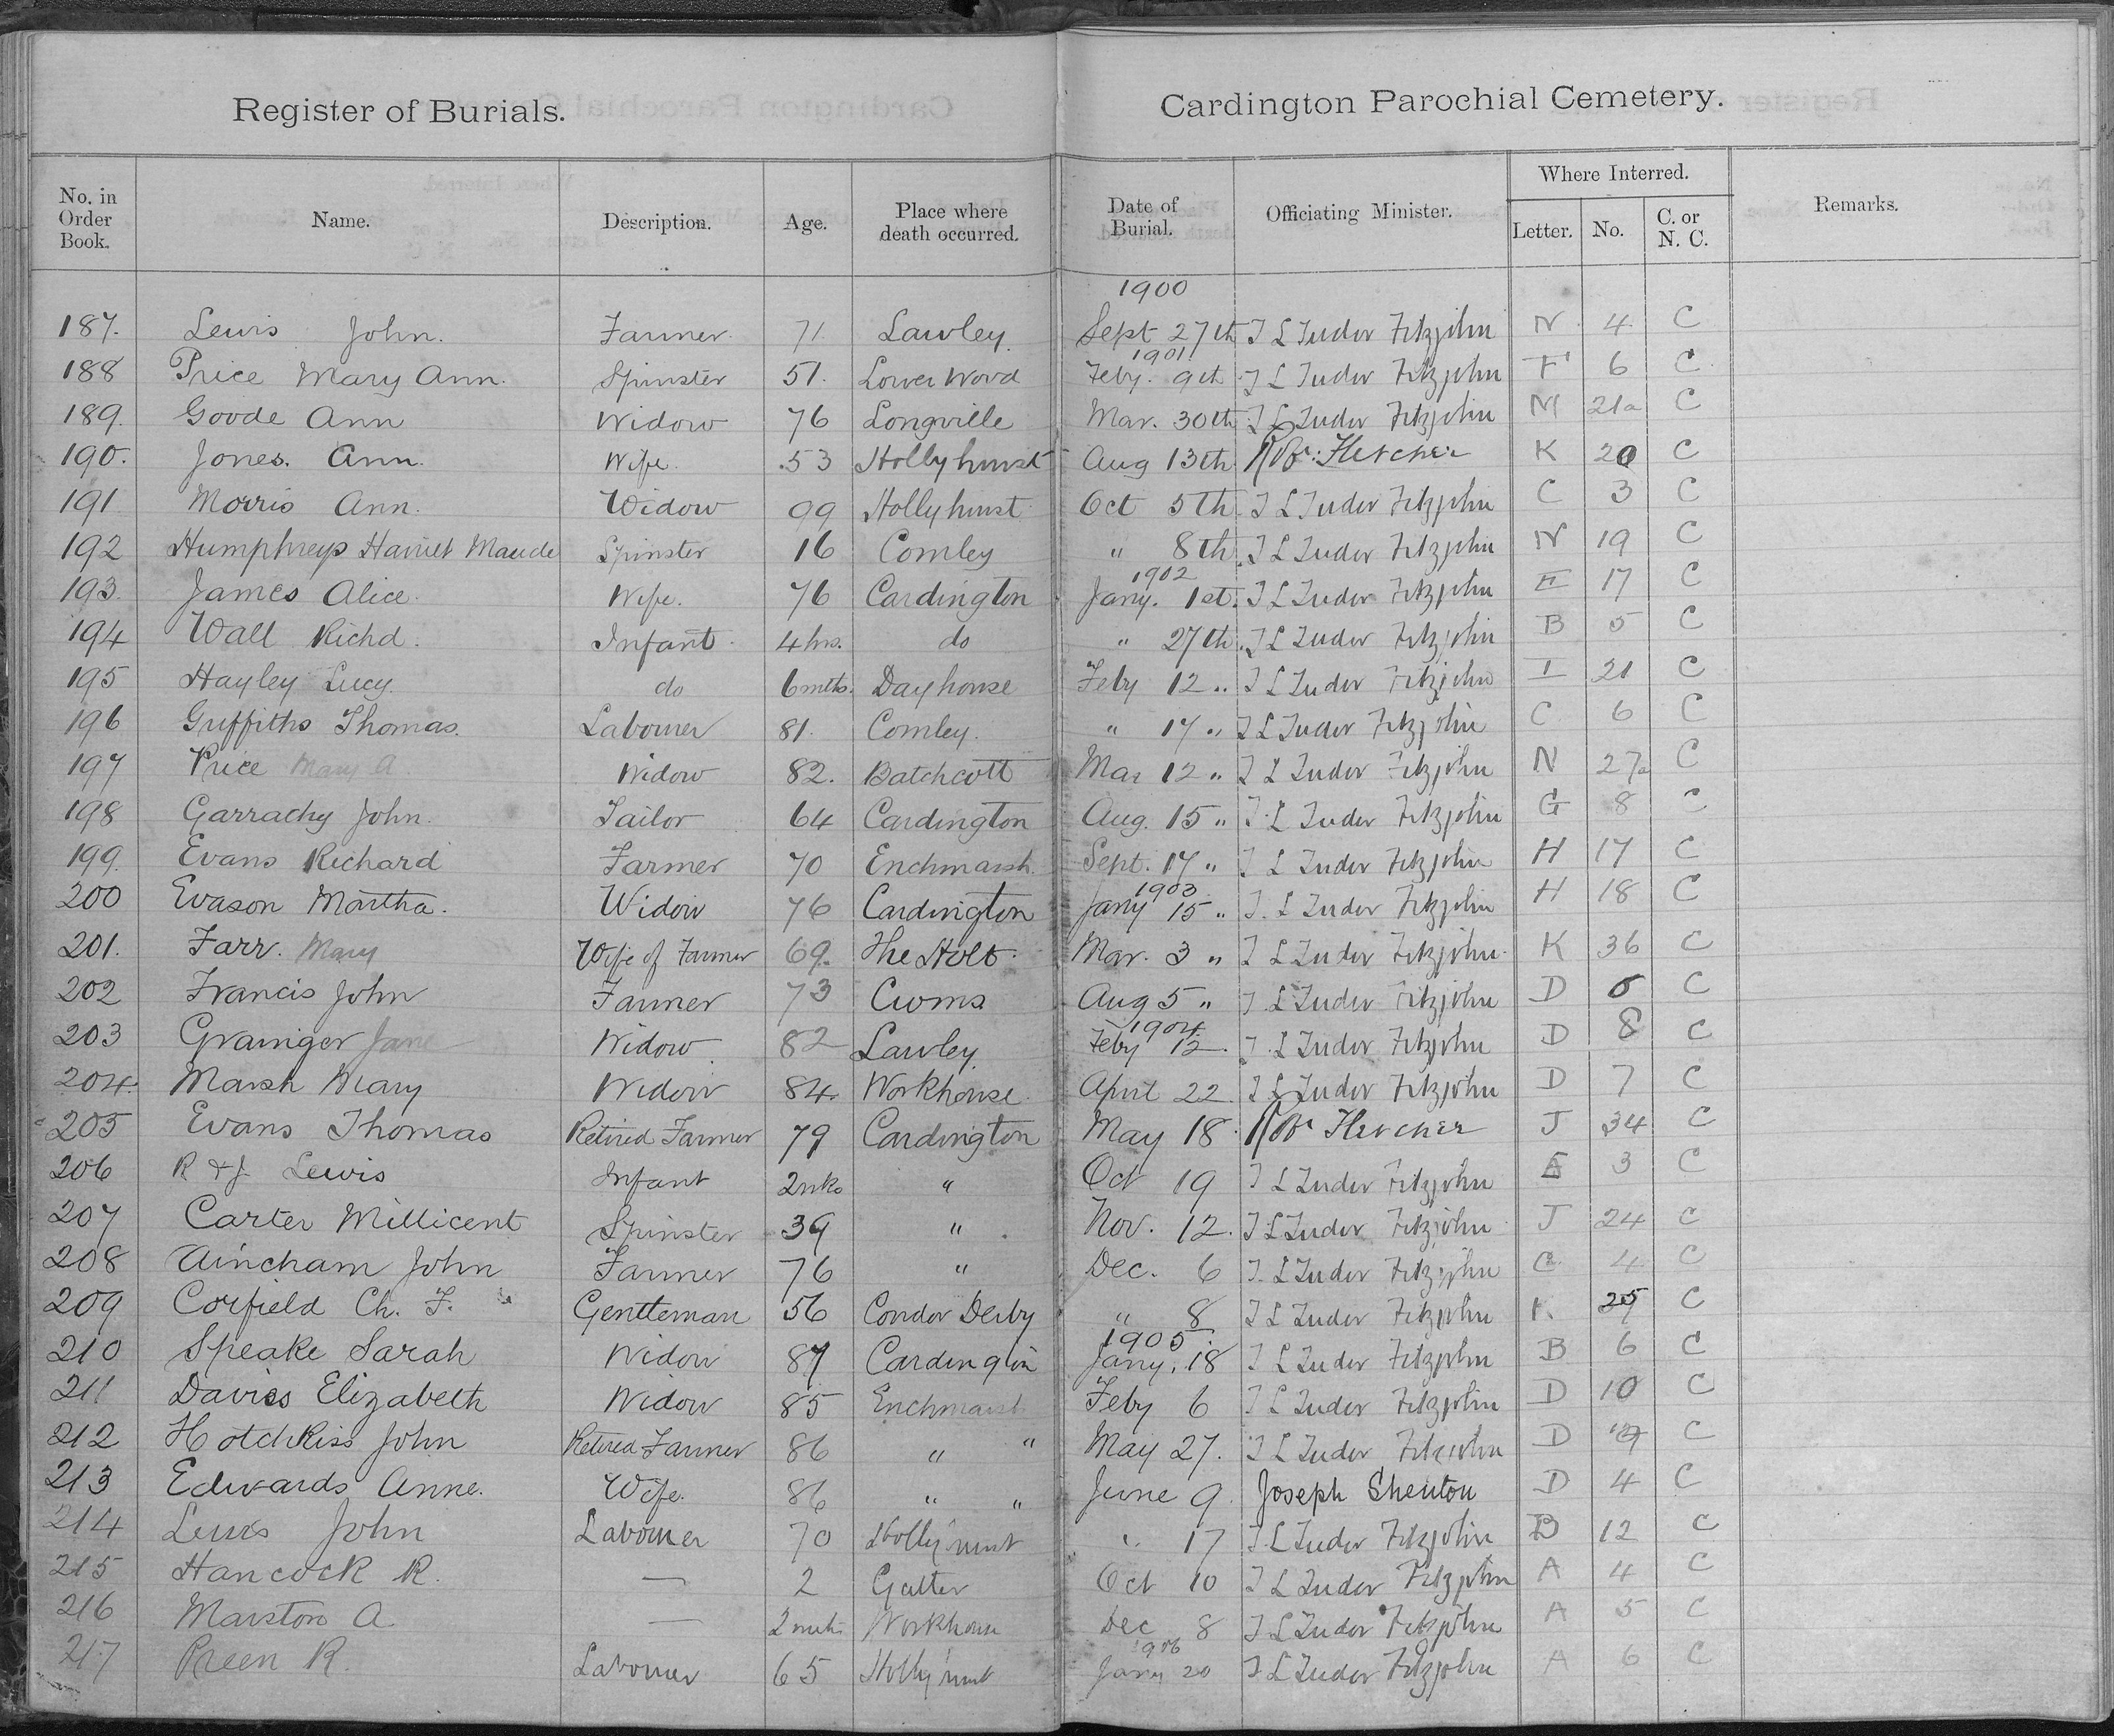 Register of Burials. Cardington Parochial Cemetery.
No. in Order Book. Name. Description. Age. Place where death occurred. Date of Burial. Officiating Minister. Where Interred. Letter. No. C. or N. C. Remarks.
1900
187. Lewis John. Farmer. 71 Lawley. Sept 27th T L Tudor Fitzjohn N 4 C
1901
188 Price Mary Ann. Spinster 51. Lower Wood Feby. 9th T L Tudor Fitzjohn F 6 C
189. Goode Ann Widow 76 Longville Mar. 30th T L Tudor Fitzjohn M 21a C
190. Jones. Ann. Wife. 53 Hollyhurst Aug 13th Fletcher K 20 C
191 Morris Ann. Widow 99 Hollyhurst Oct 5th T L Tudor Fitzjohn C 3 C
192 Humphreys Harriet Maude Spinster 16 Comley " 8th T L Tudor Fitzjohn N 19 C
1902
193. James Alice. Wife. 76 Cardington Jany. 1st. T L Tudor Fitzjohn 17 C
194 Wall Richd. Infant 4 hrs. do " 27th T L Tudor Fitzjohn B 5 C
195 Hayley Lucy. do 6 mths. Dayhouse Feby 12 " T L Tudor Fitzjohn I 21 C
196 Griffiths Thomas. Labourer 81. Comley. " 17 " T L Tudor Fitzjohn C 6 C
197 Price Mary A Widow 82. Batchcott Mar 12 " T L Tudor Fitzjohn N 27a C
198 Garrachy John. Tailor 64 Cardington Aug. 15 " T. L Tudor Fitzjohn G 8 C
199. Evans Richard Farmer 70 Enchmarsh. Sept. 17 " T L Tudor Fitzjohn H 17 C
1903
200 Evason Martha. Widow 76 Cardington Jany 15 " T. L Tudor Fitzjohn H 18 C
201. Farr. Mary Wife of Farmer 69. The Holt. Mar. 3 " T L Tudor Fitzjohn K 36 C
202 Francis John Farmer 73 Cwms Aug 5 " T L Tudor Fitzjohn D C
1904
203 Grainger Jane Widow 82 Lawley Feby 12. T. L Tudor Fitzjohn D 8 C
204. Marsh Mary Widow 84. Workhouse. April 22. T L Tudor Fitzjohn D 7 C
205 Evans Thomas Retired Farmer 79 Cardington May 18. Fletcher J 34 C
206 R & J Lewis Infant 2 wks " Oct 19 T L Tudor Fitzjohn 3 C
207 Carter Millicent Spinster 39 " Nov. 12. T L Tudor Fitzjohn J 24 C
208 Aincham John Farmer 76 " Dec. 6 T. L Tudor Fitzjohn C 4 C
209 Corfield Ch. F. Gentleman 56 Condor Derby " 8 T L Tudor Fitzjohn K. C
1905
210 Speake Sarah Widow 87 Cardington Jany. 18 T L Tudor Fitzjohn B 6 C
211 Davies Elizabeth Widow 85 Enchmarsh Feby 6 T L Tudor Fitzjohn D 10 C
212 Hotchkiss John Retired Farmer 86 " " May 27. T L Tudor Fitzjohn D C
213 Edwards Anne. Wife. 86 " " June 9. Joseph Shenton D 4 C
214 Lewis John Labourer 70 Hollyhurst " 17 T. L Tudor Fitzjohn B 12 C
215 Hancock R. — 2 Gulter Oct 10 T L Tudor Fitzjohn A 4 C
216 Marston A — 2 mths Workhouse Dec 8 T L Tudor Fitzjohn A 5 C
1906
217 Preen R. Labourer 65 Hollyhurst Jany 20 T. L Tudor Fitzjohn A 6 C